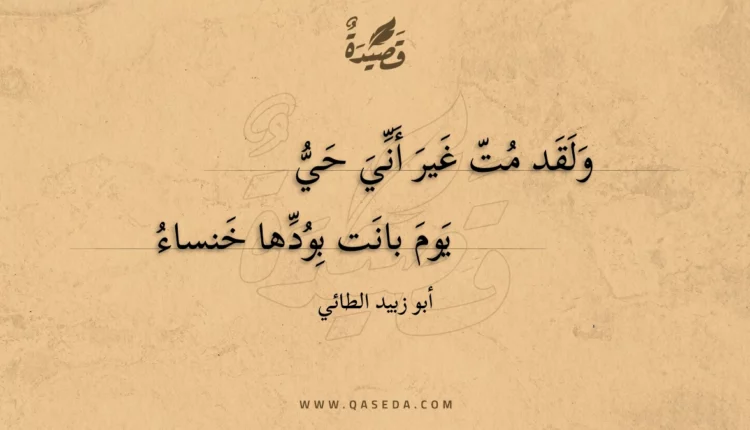 قَصِيْدَةٌ
وَلَقَد مُتّ غَيرَ أَنِّيَ حَيُّ
يَومَ بانَت بِوُدِّها خَنساءُ
أبو زبيد الطائي
WWW.QASEDA.COM